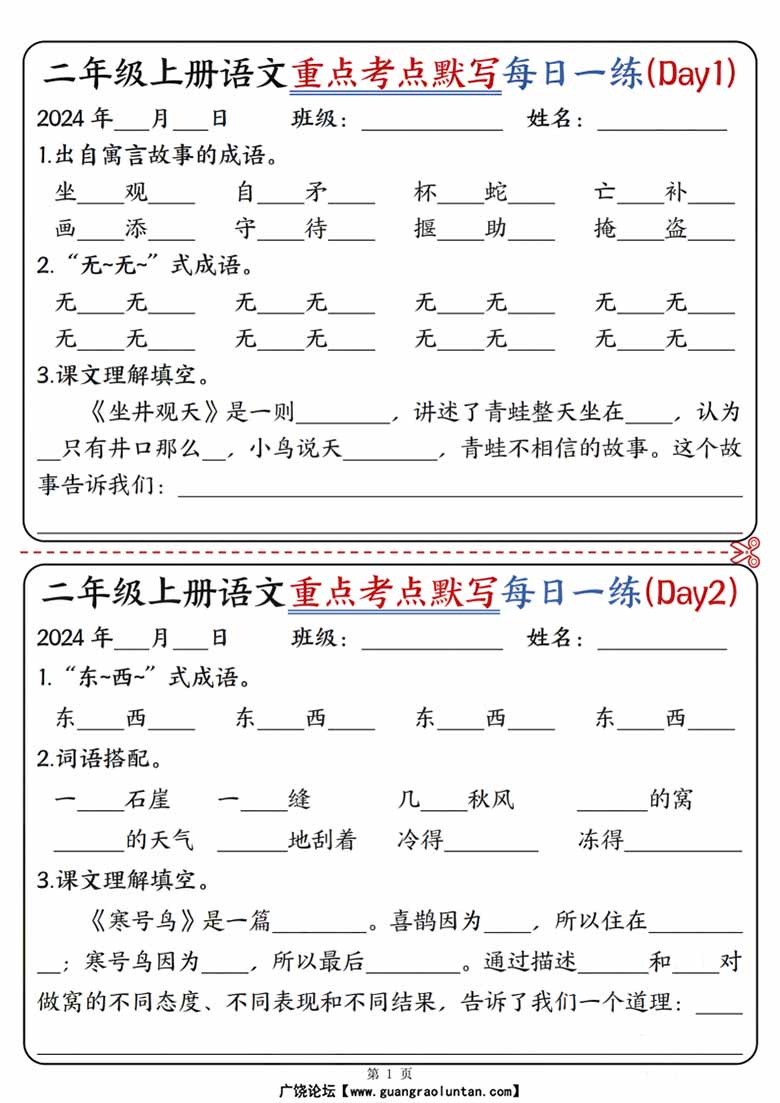 二年级上册语文重点考点默写每日一练(Day1)
2024年___月___日 班级：____________ 姓名：___________
1.出自寓言故事的成语。
坐____观____ 自____矛____ 杯____蛇____ 亡____补____
画____添____ 守____待____ 揠____助____ 掩____盗____
2.“无~无~”式成语。
无____无____ 无____无____ 无____无____ 无____无____
无____无____ 无____无____ 无____无____ 无____无____
3.课文理解填空。
《坐井观天》是一则________，讲述了青蛙整天坐在____，认为
__只有井口那么__，小鸟说天________，青蛙不相信的故事。这个故
事告诉我们：________________________________________________
____________________________________________________________
二年级上册语文重点考点默写每日一练(Day2)
2024年___月___日 班级：____________ 姓名：___________
1.“东~西~”式成语。
东____西____ 东____西____ 东____西____ 东____西____
2.词语搭配。
一____石崖 一____缝 几____秋风 ______的窝
______的天气 ______地刮着 冷得________ 冻得__________
3.课文理解填空。
《寒号鸟》是一篇________。喜鹊因为____，所以住在________
__；寒号鸟因为____，所以最后________。通过描述______和____对
做窝的不同态度、不同表现和不同结果，告诉了我们一个道理：____
____________________________________________________________
第 1 页
广饶论坛【www.guangraoluntan.com】